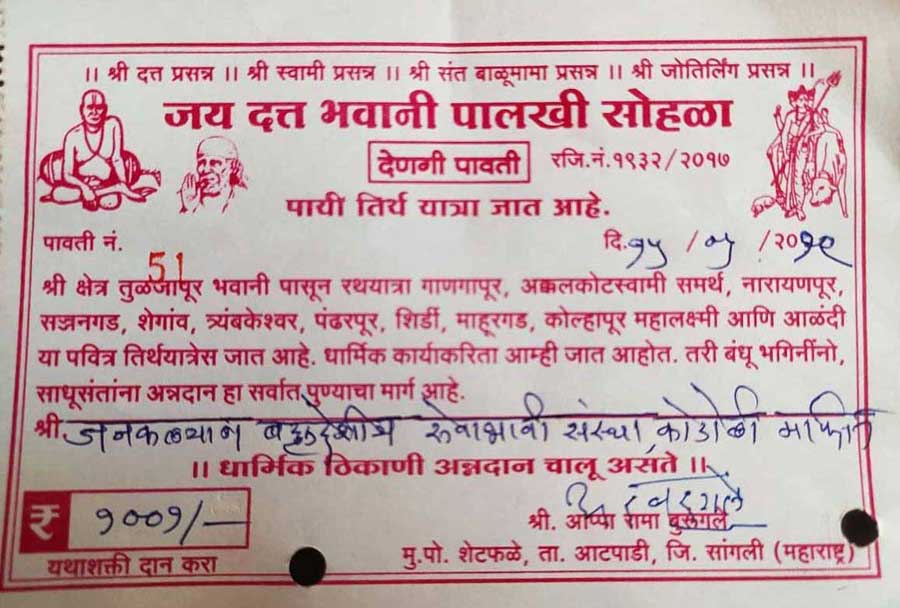 ।। श्री दत्त प्रसन्न ।। श्री स्वामी प्रसन्न ।। श्री संत बाळूमामा प्रसन्न ।। श्री जोतिर्लिंग प्रसन्न ।।
जय दत्त भवानी पालखी सोहळा
देणगी पावती रजि.नं.१९३२/२०१७
पायी तिर्थ यात्रा जात आहे.
पावती नं. 51 दि. १५ / ०५ / २०१९
श्री क्षेत्र तुळजापूर भवानी पासून रथयात्रा गाणगापूर, अक्कलकोटस्वामी समर्थ, नारायणपूर,
सज्जनगड, शेगांव, त्र्यंबकेश्वर, पंढरपूर, शिर्डी, माहूरगड, कोल्हापूर महालक्ष्मी आणि आळंदी
या पवित्र तिर्थयात्रेस जात आहे. धार्मिक कार्याकरिता आम्ही जात आहोत. तरी बंधू भगिनींनो,
साधूसंतांना अन्नदान हा सर्वात पुण्याचा मार्ग आहे.
श्री जनकल्याण बहुद्देशीय सेवाभावी संस्था, कोडोली
।। धार्मिक ठिकाणी अन्नदान चालू असते ।।
₹ १००१/-
श्री. आप्पा रामा बुरुंगले
यथाशक्ती दान करा
मु.पो. शेटफळे, ता. आटपाडी, जि. सांगली (महाराष्ट्र)